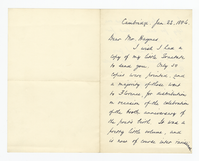 Cambridge, Jan. 23, 1886.
Dear Mr. Haynes
I wish I had a
copy of my little
to send you. Only 50
copies were printed, and
a majority of these went
to Florence, for distribution
on occasion of the celebration
of the 600th anniversary of
the poet's birth. It was a
pretty little volume, and
is now of course very rare